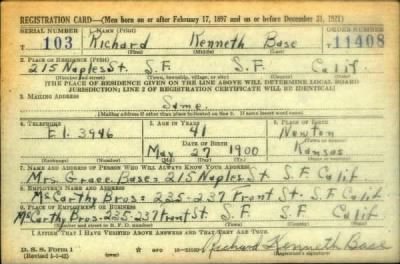 REGISTRATION CARD—(Men born on or after February 17, 1897 and on or before December 31, 1921)
SERIAL NUMBER 1. NAME (Print) ORDER NUMBER
T 103 Richard Kenneth Base T 11408
(First) (Middle) (Last)
2. PLACE OF RESIDENCE (Print)
215 Naples St. S.F. S.F. Calif
(Number and street) (Town, township, village, or city) (County) (State)
[THE PLACE OF RESIDENCE GIVEN ON THE LINE ABOVE WILL DETERMINE LOCAL BOARD
JURISDICTION; LINE 2 OF REGISTRATION CERTIFICATE WILL BE IDENTICAL]
3. MAILING ADDRESS
Same.
[Mailing address if other than place indicated on line 2. If same insert word same]
4. TELEPHONE 5. AGE IN YEARS 6. PLACE OF BIRTH
El. 3946 41 Newton
DATE OF BIRTH (Town or county)
May 27 1900 Kansas
(Exchange) (Number) (Mo.) (Day) (Yr.) (State or country)
7. NAME AND ADDRESS OF PERSON WHO WILL ALWAYS KNOW YOUR ADDRESS
Mrs. Grace Base = 215 Naples St S.F. Calif
8. EMPLOYER'S NAME AND ADDRESS
McCarthy Bros = 235-237 Front St. S.F. Calif
9. PLACE OF EMPLOYMENT OR BUSINESS
McCarthy Bros = 235-237 Front St. S.F. S.F. Calif
(Number and street or R. F. D. number) (Town) (County) (State)
I AFFIRM THAT I HAVE VERIFIED ABOVE ANSWERS AND THAT THEY ARE TRUE.
D. S. S. Form 1
(Revised 1-1-42) (over)
Richard Kenneth Base